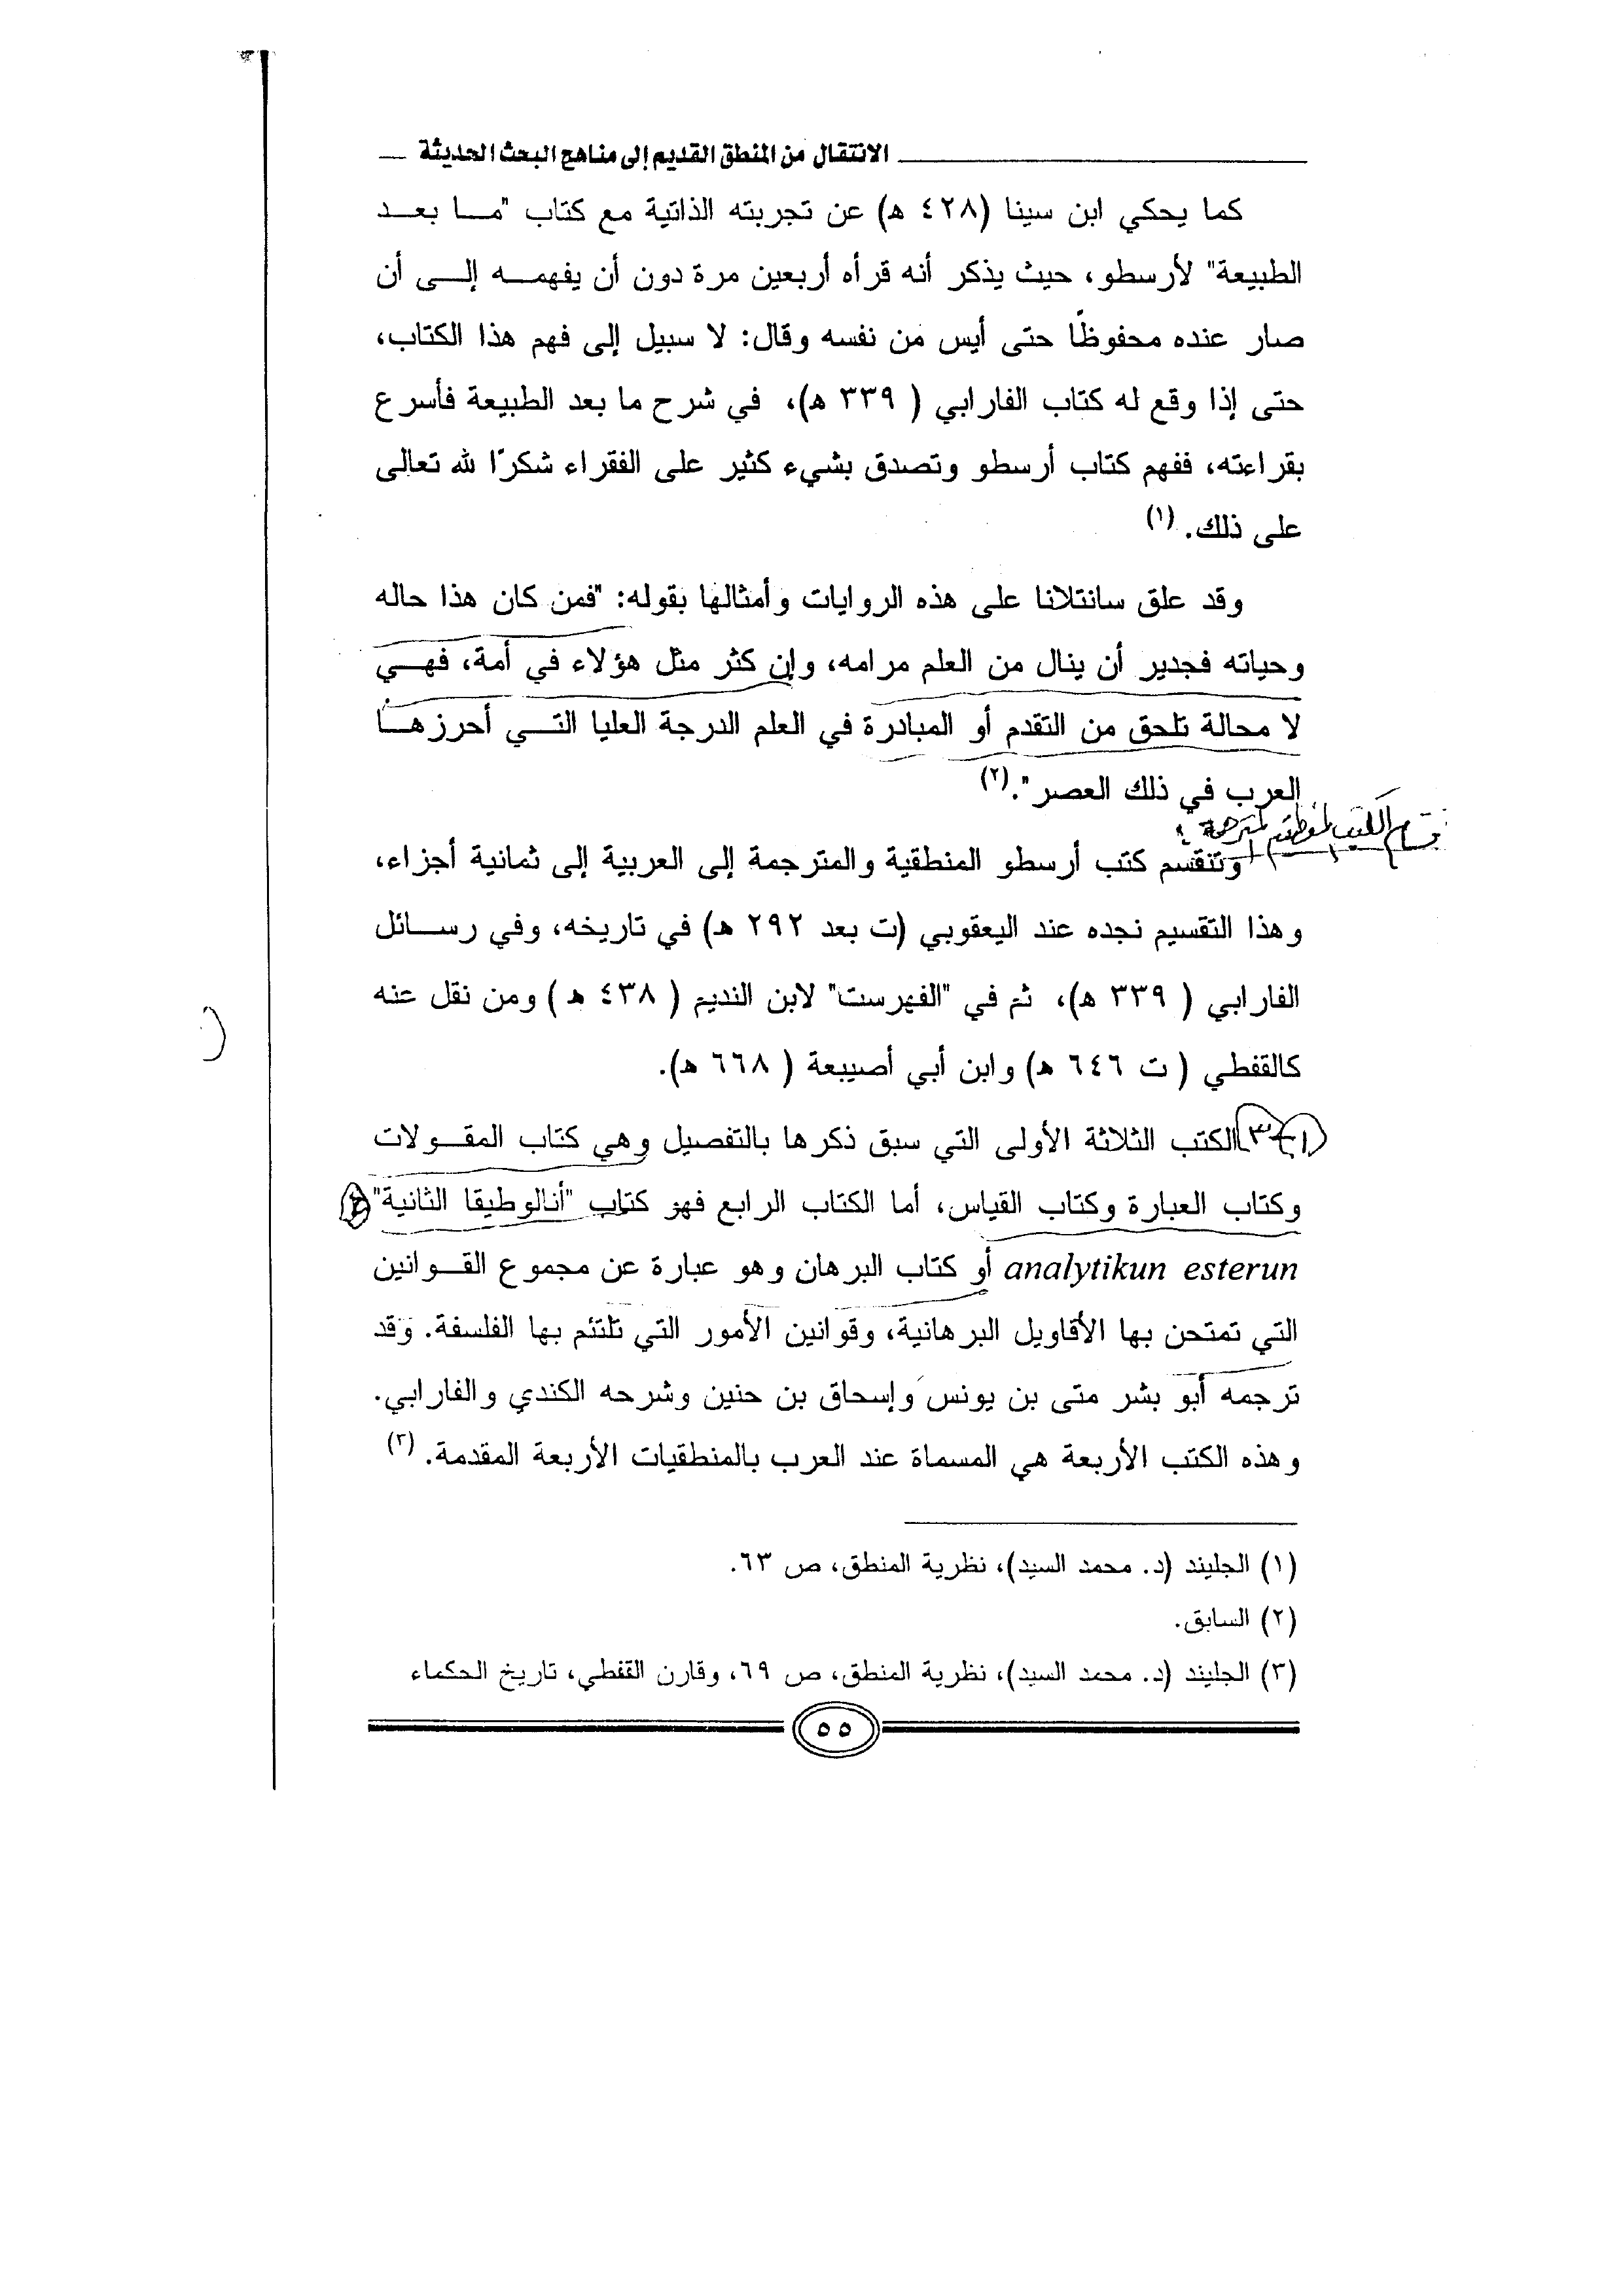 الانتقال من المنطق القديم إلى مناهج البحث الحديثة
كما يحكي ابن سينا (٤٢٨ هـ) عن تجربته الذاتية مع كتاب "مـا بعـد
الطبيعة" لأرسطو، حيث يذكر أنه قرأه أربعين مرة دون أن يفهمـه إلـى أن
صار عنده محفوظًا حتى أيس من نفسه وقال: لا سبيل إلى فهم هذا الكتاب،
حتى إذا وقع له كتاب الفارابي ( ٣٣٩ هـ)، في شرح ما بعد الطبيعة فأسرع
بقراءته، ففهم كتاب أرسطو وتصدق بشيء كثير على الفقراء شكرًا لله تعالى
على ذلك. (١)
وقد علق سانتلانا على هذه الروايات وأمثالها بقوله: "فمن كان هذا حاله
وحياته فجدير أن ينال من العلم مرامه، وإن كثر مثل هؤلاء في أمة، فهـي
لا محالة تلحق من التقدم أو المبادرة في العلم الدرجة العليا التـي أحرزهـا
العرب في ذلك العصر". (٢)
الكتب المنطقية المترجمة
وتنقسم كتب أرسطو المنطقية والمترجمة إلى العربية إلى ثمانية أجزاء،
وهذا التقسيم نجده عند اليعقوبي (ت بعد ٢٩٢ هـ) في تاريخه، وفي رسـائل
الفارابي ( ٣٣٩ هـ)، ثم في "الفهرست" لابن النديم ( ٤٣٨ هـ ) ومن نقل عنه
كالقفطي ( ت ٦٤٦ هـ) وابن أبي أصيبعة ( ٦٦٨ هـ).
(١-٣) الكتب الثلاثة الأولى التي سبق ذكرها بالتفصيل وهي كتاب المقـولات
وكتاب العبارة وكتاب القياس، أما الكتاب الرابع فهو كتاب "أنالوطيقا الثانية"
analytikun esterun أو كتاب البرهان وهو عبارة عن مجموع القـوانين
التي تمتحن بها الأقاويل البرهانية، وقوانين الأمور التي تلتئم بها الفلسفة. وقد
ترجمه أبو بشر متى بن يونس وإسحاق بن حنين وشرحه الكندي والفارابي.
وهذه الكتب الأربعة هي المسماة عند العرب بالمنطقيات الأربعة المقدمة. (٣)
(١) الجليند (د. محمد السيد)، نظرية المنطق، ص ٦٣.
(٢) السابق.
(٣) الجليند (د. محمد السيد)، نظرية المنطق، ص ٦٩، وقارن القفطي، تاريخ الحكماء
٥٥